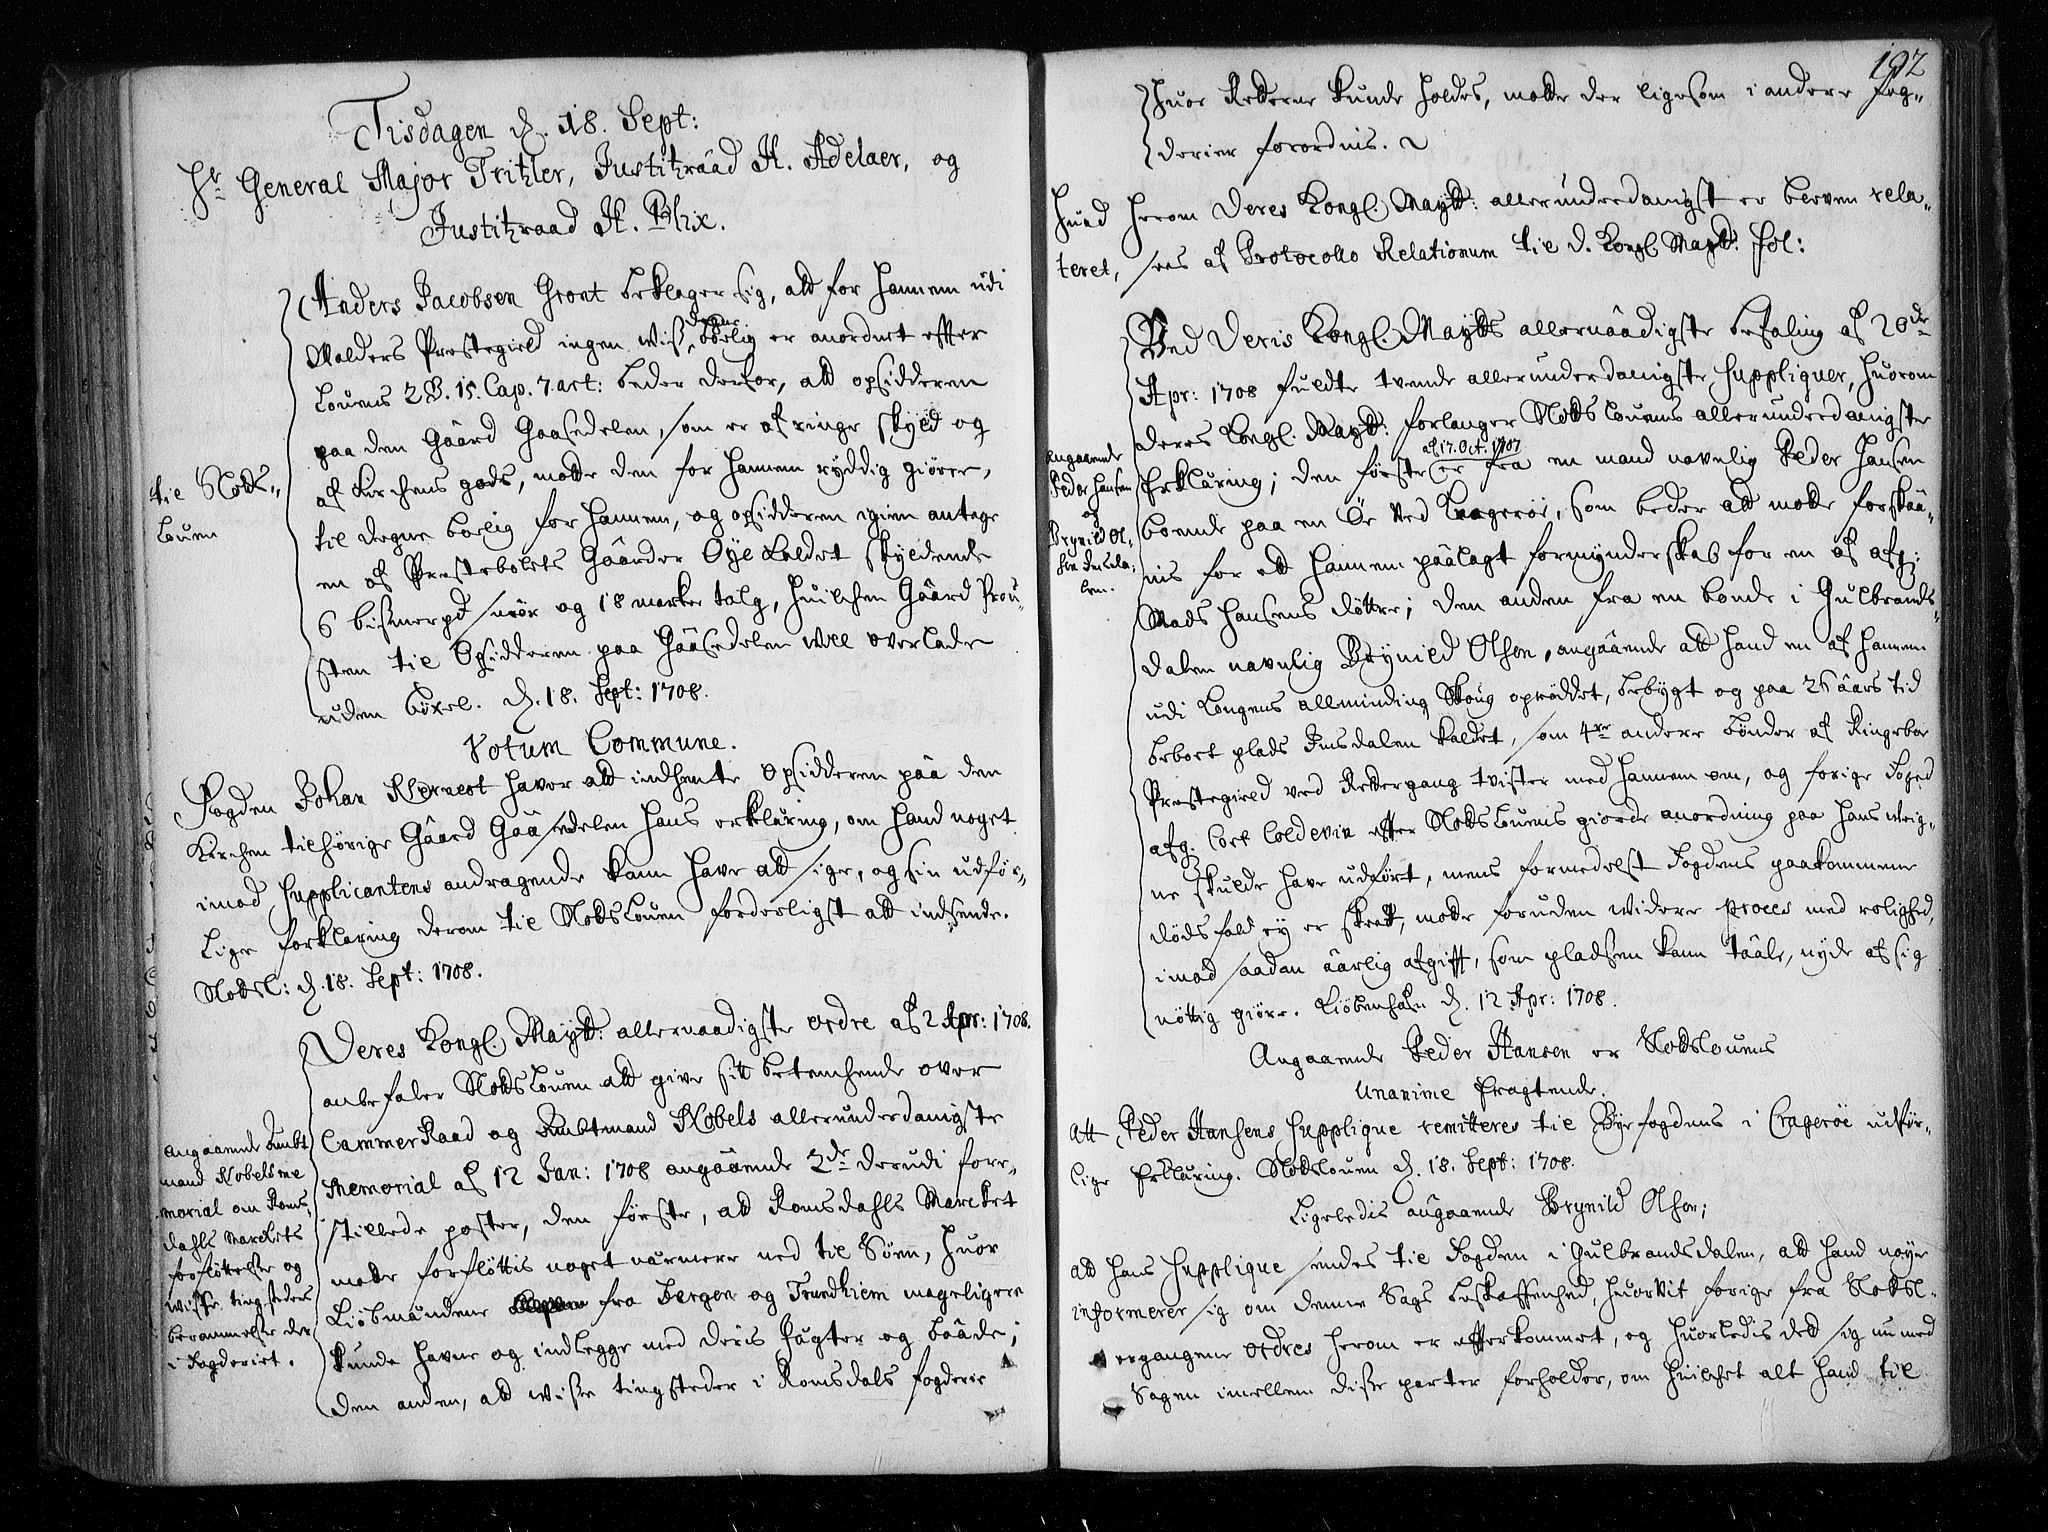 Tisdagen d. 18. Sept:
Hr. General Major Tritzler, Justitzraad H. Adelaer, og
Justitzraad H. Blix.
Anders Jacobsen Gront beklager sig, att for hannem udi
Malders Prestegield ingen wiss degne bolig er anordnet effter
Louens 2 B. 15. Cap. 7 art: beder derfor, att opsidderen
paa den Gaard Gaasedelen, som er af ringe skyld og
af Kirchens gods, motte den for hannem ryddig giøre,
til Slotts-
louen
til degne bolig for hannem, og opsidderen igien antage
en af Prestebolets Gaarder Øye kaldet skyldende
6 bismerpd smør og 18 marker talg, huilchen Gaard Prou-
sten til Opsidderen paa Gaasedelen vil overlade
uden böxel. d. 18. Sept: 1708.
Votum Commune.
Fogden Johan haver att indhente Opsidderen paa den
Kirchen tilhørige Gaard Gaasedelen hans erklæring, om hand noget
imod Supplicantens andragende kann have att sige, og sin udfør-
lige forklaring derom til Slottslouen forderligst att indsende.
Slottsl: d. 18. Sept: 1708.
Deres Kongl. Maytt: allernaadigste ordre af 2 Apr: 1708.
anbefaler Slottslouen att give sitt betenchende over
Cammer Raad og Ambtmand Nobels allerunderdanigste
Memorial af 12 Jan: 1708 angaaende 2de derudi fore-
stillede poster, den første, att Romsdahls Marcket
motte forflöttis noget nærmere ned til Söen, huor
Kiöbmændene fra Bergen og Trundhiem mageligere
kunde havne og indlegge med deris Jagter og baade;
den anden, att wisse tingsteder i Romsdals fogderie
angaaende Ambt
mand Nobels me
morial om Roms-
dahls Marckets
forflöttelse og
wisse tingsteders
berammelse der
i Fogderiet.
192
huor Retterne kunde holdes, motte der ligesom i andere fog-
derier forordnis.
Huad herom Deres Kongl. Maytt: allerunderdanigst er bleven rela-
teret, sees af Protocollo Relationum til D. Kongl. Maytt: fol:
Ved Deris Kongl. Maytts allernaadigste befaling af 20de
Apr: 1708 fuldte tvende allerunderdanigste Suppliquer, huorom
deres Kongl. Maytt: forlanger Slottslouens allerunderdanigste
af 17. Oct. 1707
Erklæring; den første er fra en mand navnlig Peder Hansen
boende paa en Øe ved Kragerøe, som beder att motte forskaa-
nis for ett hannem paalagt formynderskab for en af afg:
Mads Hansens døttre; den anden fra en bonde i Gulbrands-
dalen navnlig Brynild Olsen, angaaende att hand en af hannem
udi Kongens allminding Skoug oprøddet, bebygt og paa 26 aars tid
beboet plads Imsdalen kaldet, som 4re andere bønder af Ringeboe
Prestegield ved Rettergang tvister med hannem om, og forige Foged
afg. Cort Coldevin effter Slottslouens giorde anordning paa hans weig-
ne skulde have udført, mens formedelst Fogdens paakommene
dødsfald ey er skeet, motte foruden widere proces med rolighed,
imod saadan aarlig afgifft, som pladsen kann taale, nyde af sig
nöttig giöre. Kiöbenhafn d. 12 Apr: 1708.
angaaende
Peder Hansen
og
Brynild Ol-
sen
Angaaende Peder Hansen er Slottslouens
Unanime Eragtende.
Att Peder Hansens Supplique remitteres til Byefogdens i Cragerøe udfør-
lige Erklæring. Slottslouen d. 18. Sept: 1708.
Ligeledis angaaende Brynild Olsen;
att hans Supplique sendes til Fogden i Gulbrandsdalen, att hand nøye
informerer sig om denne Sags beskaffenhed, huorvit forige fra Slottsl-
ergangene ordres herom er effterkommet, og huorledis det sig nu med
Sagen imellem disse parter forholder, om huilchet alt hand til